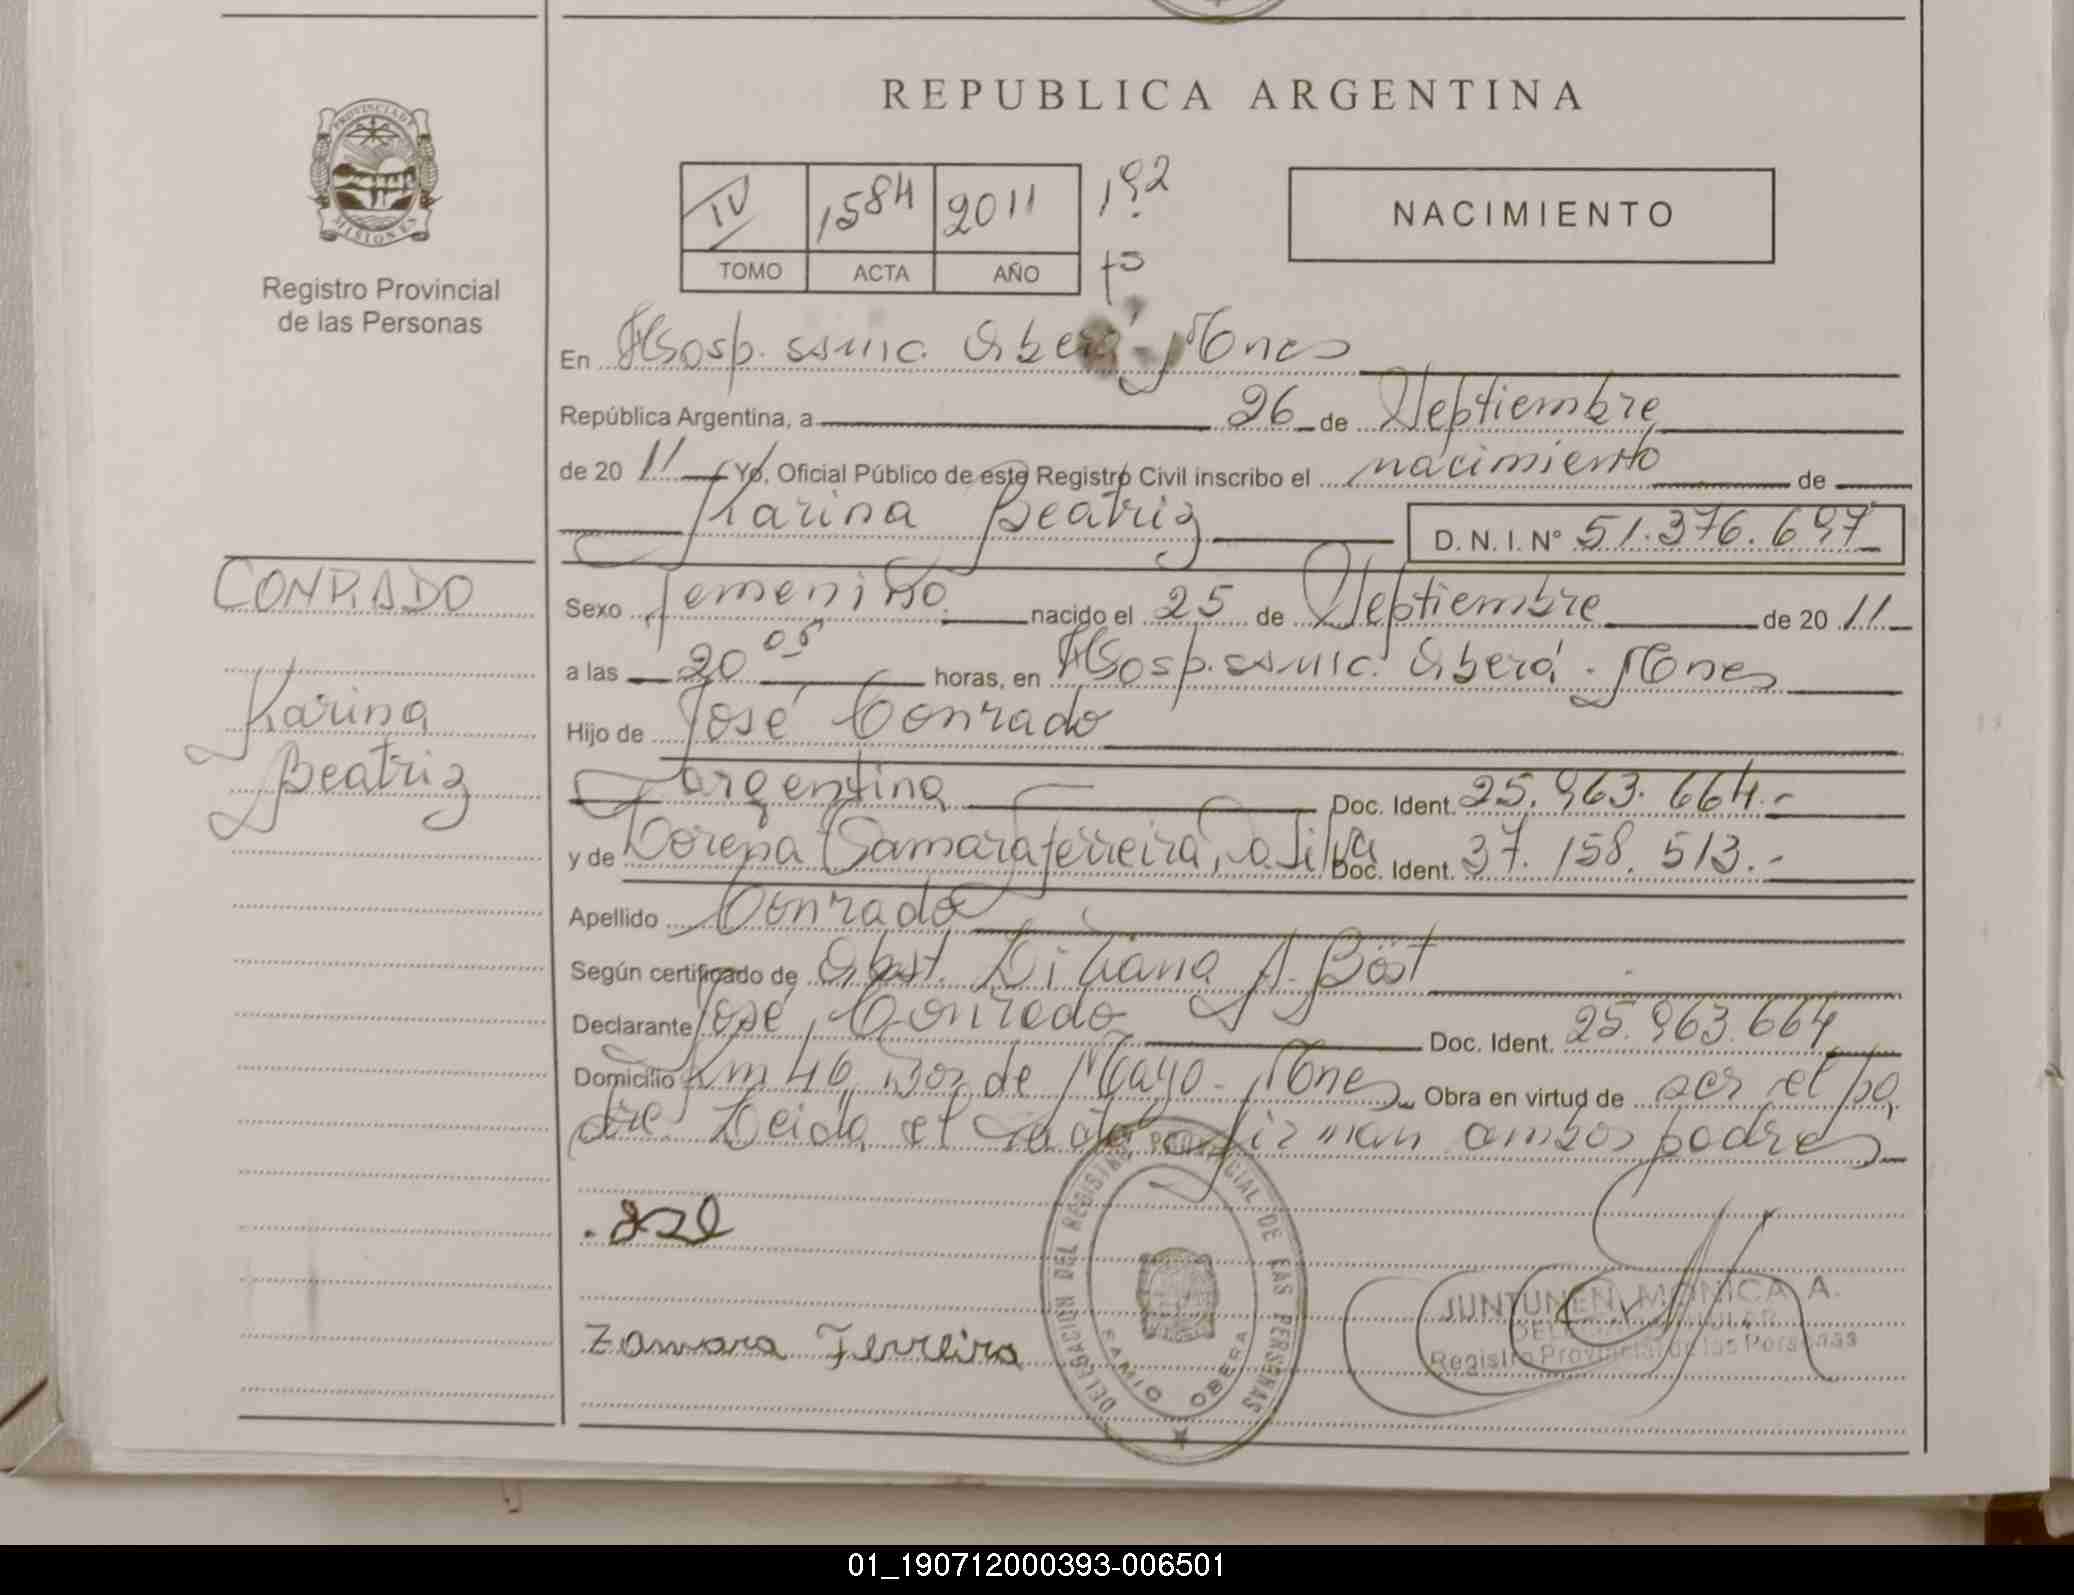 REPUBLICA ARGENTINA
PROVINCIA DE
MISIONES
Registro Provincial
de las Personas
IV 1584 2011 192
TOMO ACTA AÑO fº
NACIMIENTO
En Hosp. ssmic. Oberá - Mnes
República Argentina, a 26 de Septiembre
de 20 11 Yo, Oficial Público de este Registro Civil inscribo el nacimiento de
Karina Beatriz D.N.I. Nº 51.376.697
CONRADO
Karina
Beatriz
Sexo femenino nacido el 25 de Septiembre de 20 11
a las 20 05 horas, en Hosp. ssmic. Oberá - Mnes
Hijo de José Conrado
argentina Doc. Ident. 25.963.664.-
y de Lorena Samara Ferreira, Da Silva Doc. Ident. 37.158.513.-
Apellido Conrado
Según certificado de Obst. Liliana A. Böst
Declarante José Conrado Doc. Ident. 25.963.664
Domicilio Km 46, Dos de Mayo - Mnes Obra en virtud de ser el pa
dre. Leida el acta firman ambos padres
DELEGACION DEL REGISTRO PROVINCIAL DE LAS PERSONAS
SAMIC OBERA
Zamara Ferreira
JUNTUNEN, MONICA A.
Registro Provincial de las Personas
01_190712000393-006501